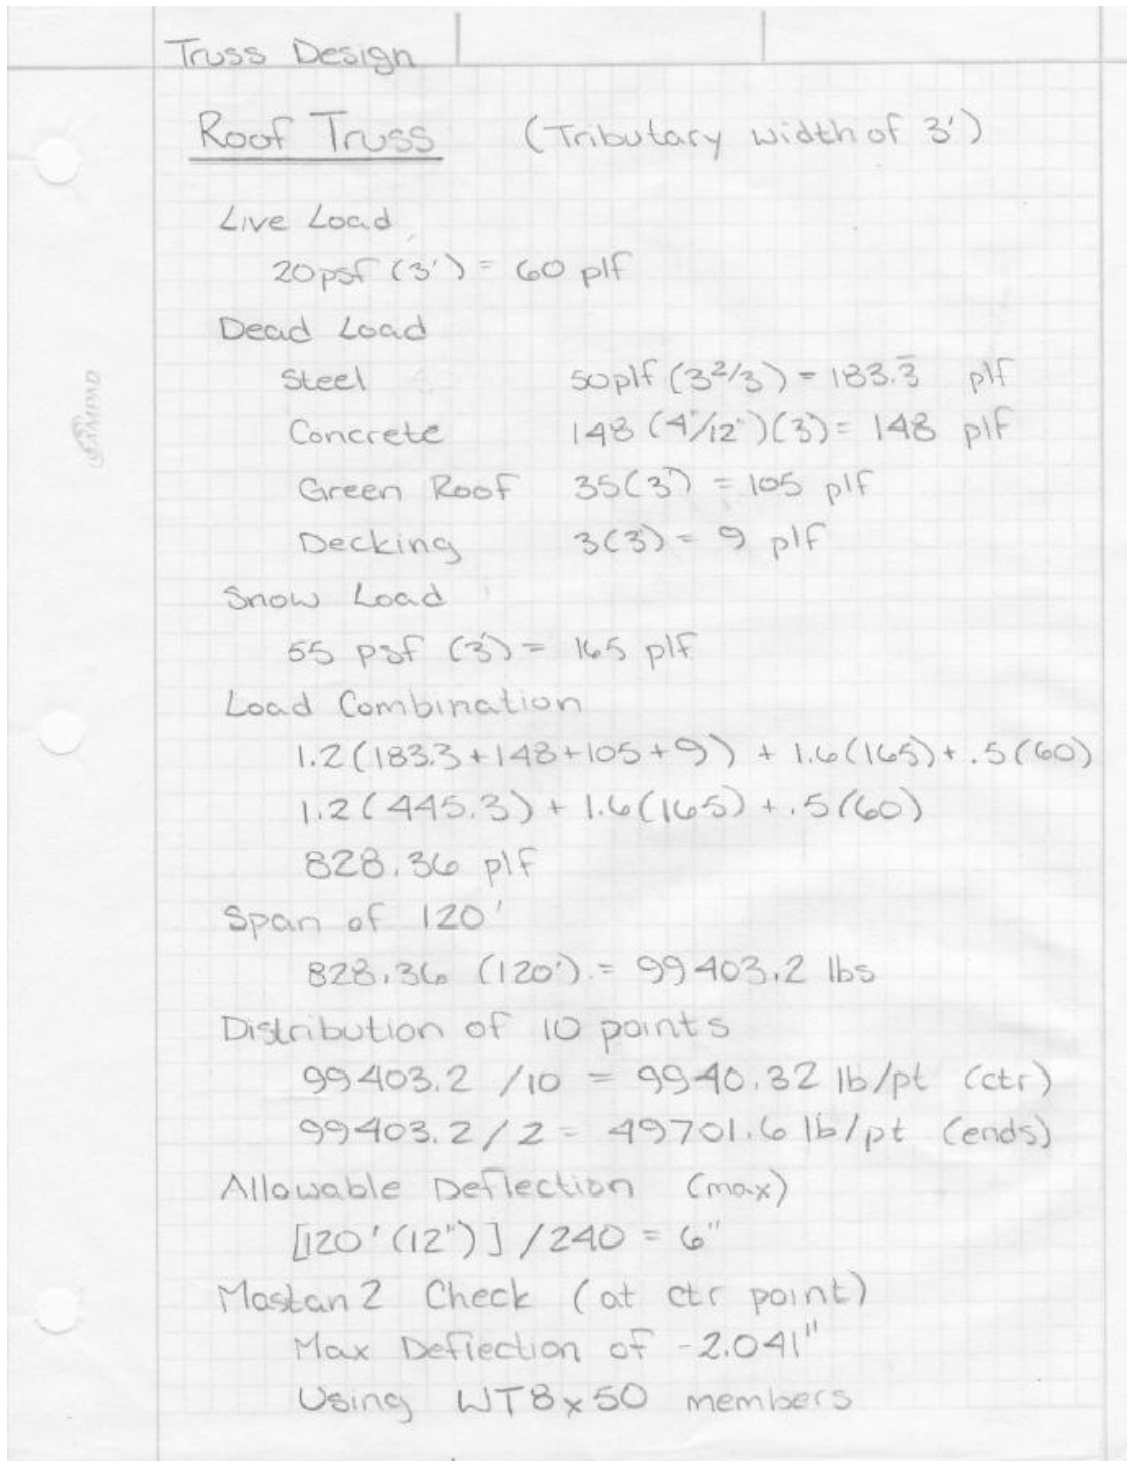 Truss Design
Roof Truss (Tributary width of 3')
Live Load
20psf (3') = 60 plf
Dead Load
Steel 50plf (3 2/3) = 183.3̅ plf
Concrete 148 (4"/12")(3') = 148 plf
Green Roof 35(3') = 105 plf
Decking 3(3') = 9 plf
Snow Load
55 psf (3') = 165 plf
Load Combination
1.2(183.3+148+105+9) + 1.6(165) + .5(60)
1.2(445.3) + 1.6(165) + .5(60)
828.36 plf
Span of 120'
828.36 (120') = 99403.2 lbs
Distribution of 10 points
99403.2 /10 = 9940.32 lb/pt (ctr)
99403.2/2 = 49701.6 lb/pt (ends)
Allowable Deflection (max)
[120'(12")] /240 = 6"
Mastan2 Check (at ctr point)
Max Deflection of -2.041"
Using WT8x50 members
AMPAD